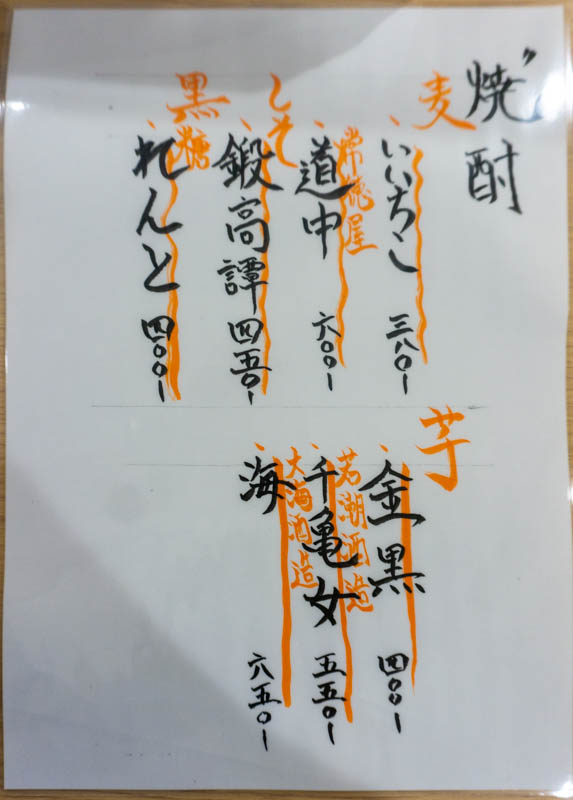 焼酎
麦
いいちこ 三八〇-
常徳屋
道中 六〇〇-
しそ
鍛高譚 四五〇-
黒糖
れんと 四〇〇-
芋
金黒 四〇〇-
若潮酒造
千亀女 五五〇-
大海酒造
海 六五〇-